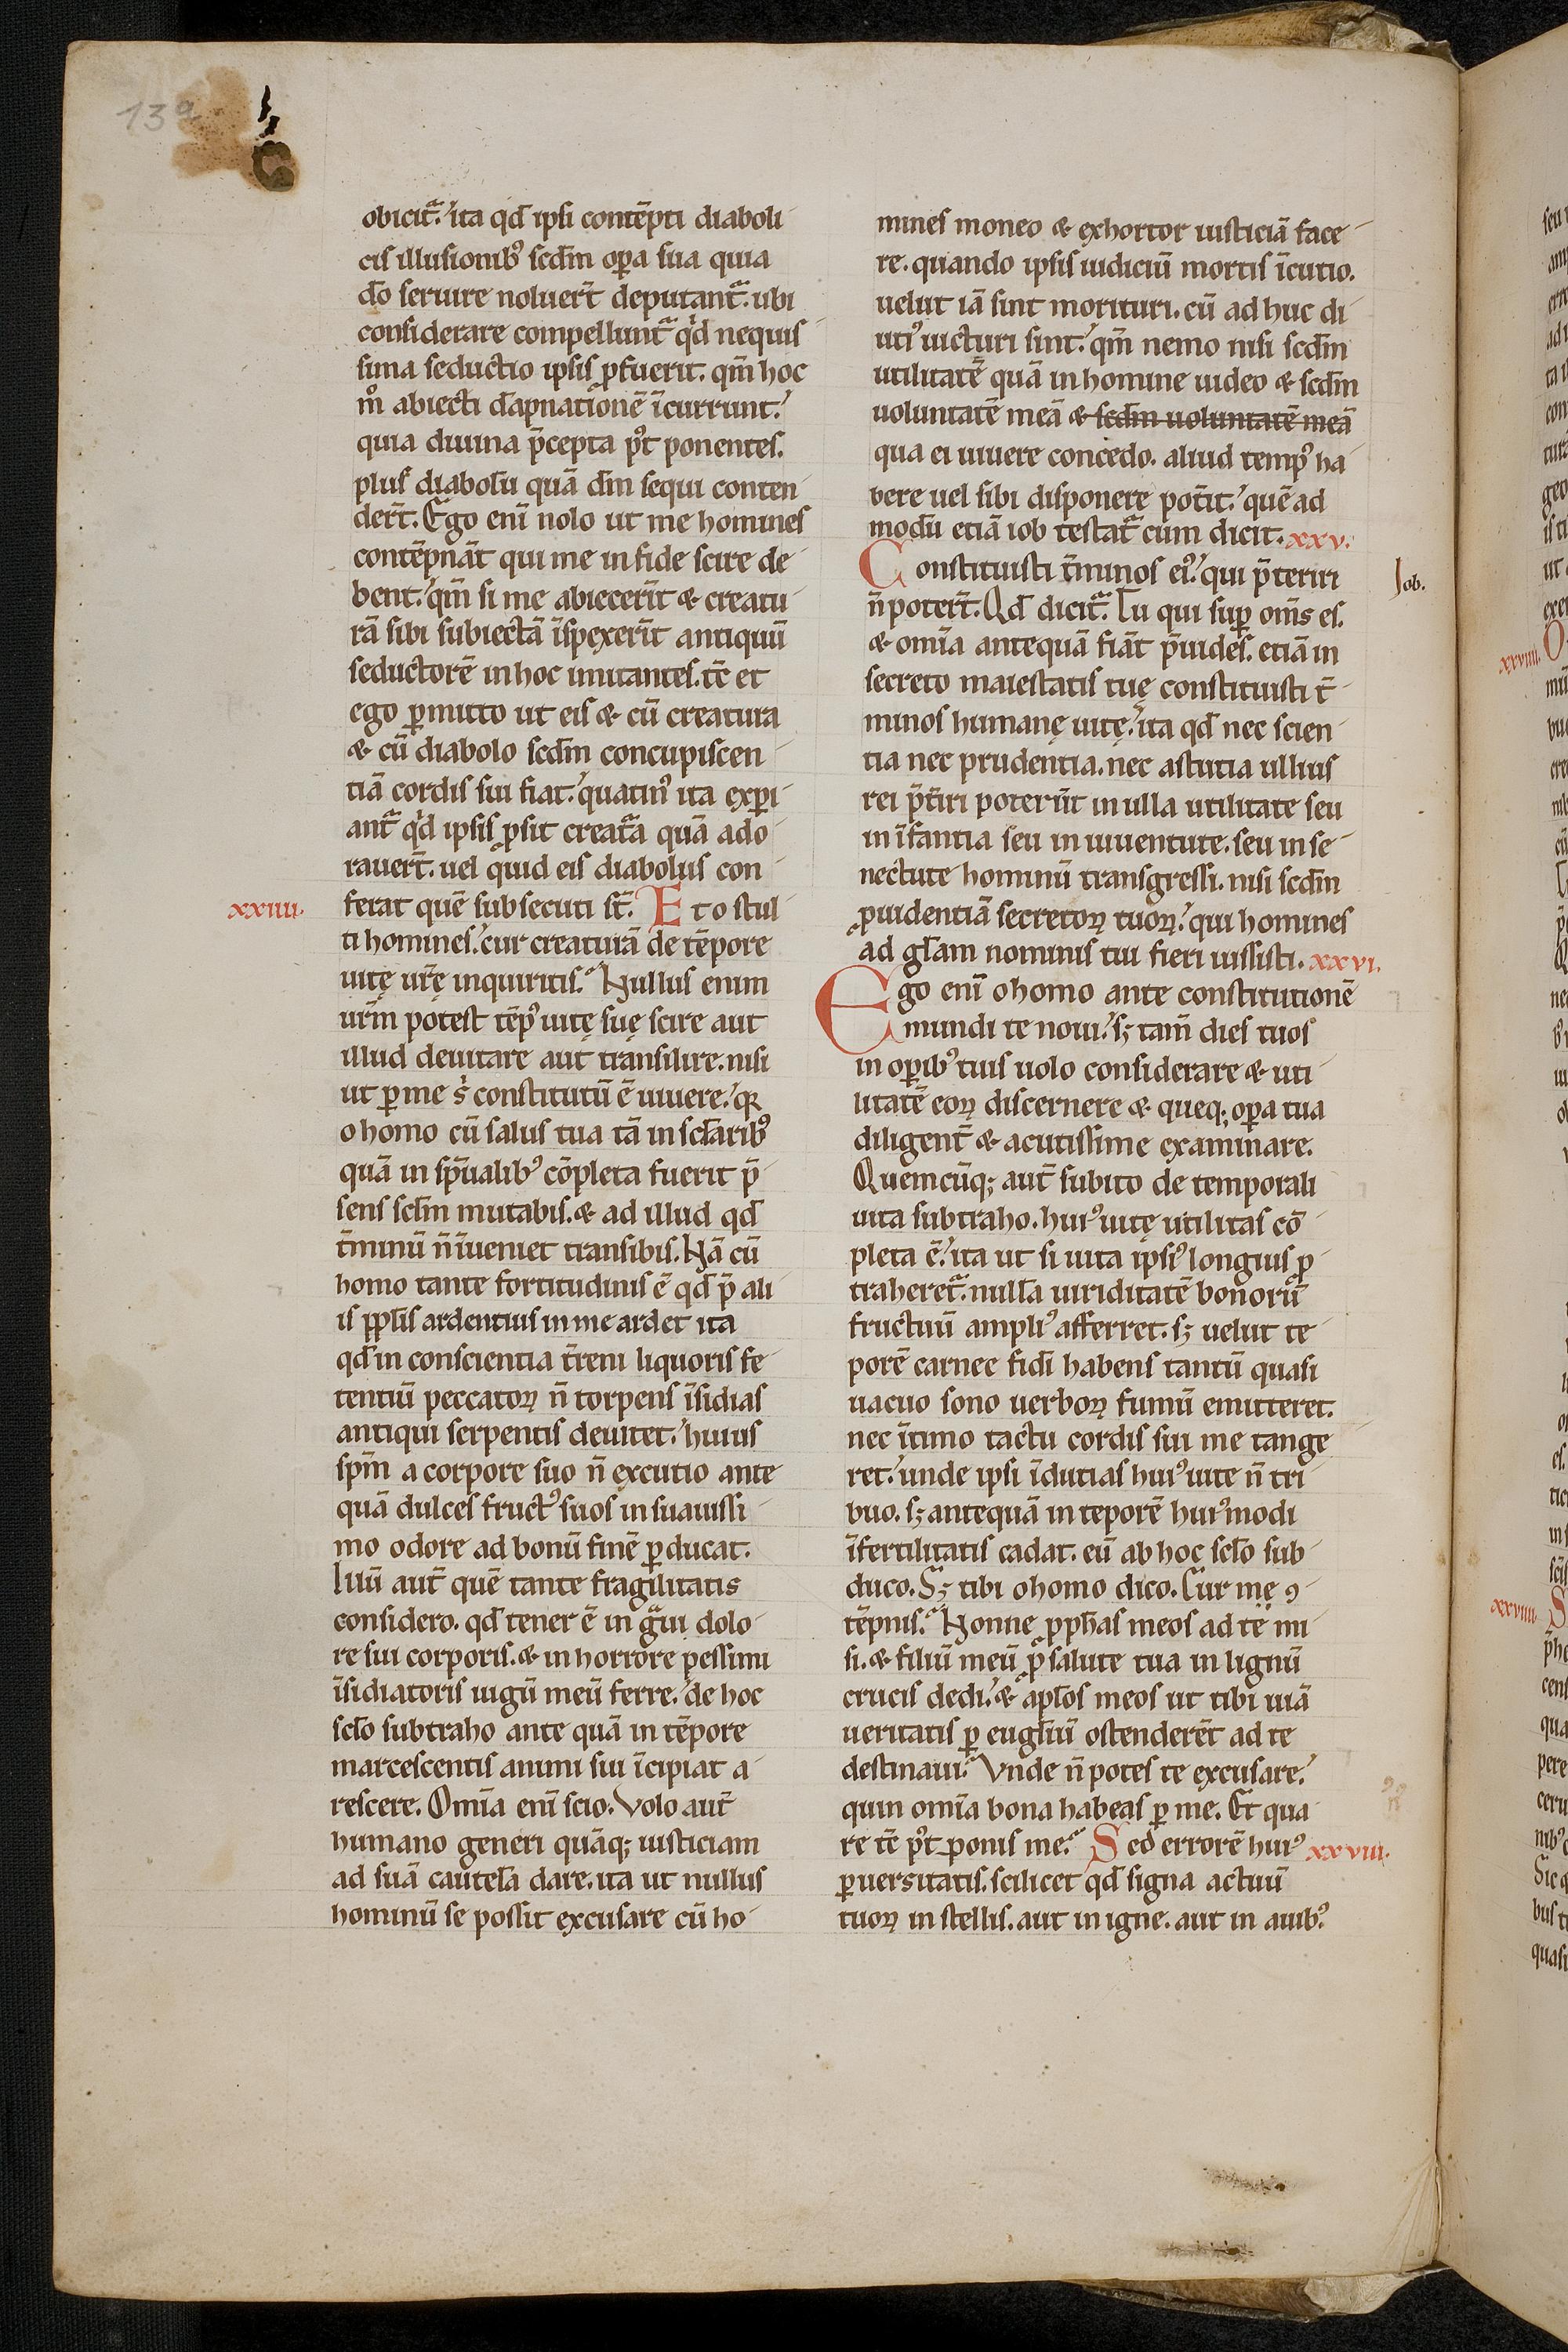 139
obicit᷑. ita qd̄ ipsi contēpti diaboli
cis illusionib᷒ scd̄m oꝑa sua quia
dō seruire noluer̄t deputant᷑. ubi
considerare compellunt᷑ qͥd nequis
sima seductio ipsis ꝓfuerit. qm̄ hoc
mͦ abiecti dāpnationē īcurrunt.
quia diuina p̄cepta pꝰt ponentes.
plus diabolū quā dm̄ sequi conten
der̄t. Ego enī nolo ut me homines
contēpnāt qui me in fide scire de
bent. qm̄ si me abiecerīt & creatu
rā sibi subiectā īspexerīt antiquū
seductorē in hoc imitantes. tc̄ et
ego ꝑmitto ut eis & cū creatura
& cū diabolo scd̄m concupiscen
tiā cordis sui fiat. quatinꝰ ita exꝑi
ant᷑ qͥd ipsis ꝓsit creat᷑a quā ado
rauer̄t. uel quid eis diabolus con
xxiiii. ferat quē subsecuti st̄. E t o stul
ti homines. cur creaturā de tēpore
uitę ur̄ę inquiritis. Nullus enim
ur̄m potest tēpꝰ uitę suę scire aut
illud deuitare aut transilire. nisi
ut ꝑ me sͥ constitutū ē uiuere. qꝛ
o homo cū salus tua tā in sclarib᷒
quā in sp̄ualib᷒ cōpleta fuerit p̄
sens sclm̄ mutabis. & ad illud qd̄
t̄minū n̄ īueniet transibis. Nā cū
homo tante fortitudinis ē qd̄ p̄ ali
is ppl̄is ardentius in me ardet ita
qd̄ in conscientia t̄reni liquoris fe
tentiū peccatoꝝ n̄ torpens īsidias
antiqui serpentis deuitet. huius
spm̄ a corpore suo n̄ excutio ante
quā dulces fructꝰ suos in suauissi
mo odore ad bonū finē ꝑducat.
Illū aut̄ quē tante fragilitatis
considero. qd̄ tener ē in gᷓui dolo
re sui corporis. & in horrore pessimi
īsidiatoris iugū meū ferre. de hoc
scl̄o subtraho ante quā in tēpore
marcescentis animi sui īcipiat a
rescere. Omīa enī scio. Volo aut̄
humano generi quāq; iusticiam
ad suā cautelā dare. ita ut nullus
hominū se possit excusare cū ho
mines moneo & exhortor iusticiā face
re. quando ipsis iudiciū mortis īcutio.
uelut iā sint morituri. cū ad huc di
utiꝰ uicturi sint. qm̄ nemo nisi scd̄m
utilitatē quā in homine uideo & scd̄m
uoluntatē meā & scd̄m uoluntatē meā
qua ei uiuere concedo. aliud tempꝰ ha
bere uel sibi disponere pot̄it. quē ad
modū etiā iob testat᷑ cum dicit. xxv.
Constituisti t̄minos eiꝰ. qui p̄teriri Iob.
n̄ poter̄t. Qd̄ dicit᷑. Tu qui suꝑ om̄s es.
& omīa antequā fiāt p̄uides. etiā in
secreto maiestatis tuę constituisti t̄
minos humanę uitę. ita qd̄ nec scien
tia nec prudentia. nec astutia ullius
rei p̄t̄iri poterūt in ulla utilitate seu
in īfantia seu in iuuentute. seu in se
nectute hominū transgressi. nisi scd̄m
ꝓuidentiā secretoꝝ tuoꝝ. qui homines
ad gl̄am nominis tui fieri iussisti. xxvi.
Ego enī o homo ante constitutionē
mundi te noui. sꝫ tam̄ dies tuos
in oꝑib᷒ tuis uolo considerare & uti
litatē eoꝝ discernere & queq; oꝑa tua
diligent̄ & acutissime examinare.
Quemcūq; aut̄ subito de temporali
uita subtraho. huiꝰ uitę utilitas cō
pleta ē. ita ut si uita ipsiꝰ longius ꝓ
traheret᷑. nullā uiriditatē bonorū
fructuū ampliꝰ afferret. sꝫ uelut te
porē carnee fidī habens tantū quasi
uacuo sono uerboꝝ fumū emitteret.
nec ītimo tactu cordis sui me tange
ret. unde ipsi īdutias huiꝰ uite n̄ tri
buo. sꝫ antequā in teporē huiꝰmodi
īfertilitatis cadat. eū ab hoc scl̄o sub
duco. Sꝫ tibi o homo dico. Cur me ꝯ
tēpnis. Nonne ꝓph̄as meos ad te mi
si. & filiū meū ꝓ salute tua in lignū
crucis dedi. & apl̄os meos ut tibi uiā
ueritatis ꝑ eugl̄iū ostenderēt ad te
destinaui. Vnde n̄ potes te excusare.
quin omīa bona habeas ꝑ me. Et qua
re tē pꝰt ponis me. Sed errorē huiꝰ xxvii.
ꝑuersitatis. scilicet qd̄ signa actuū
tuoꝝ in stellis. aut in igne. aut in auib᷒
xxviii.
xxviiii.